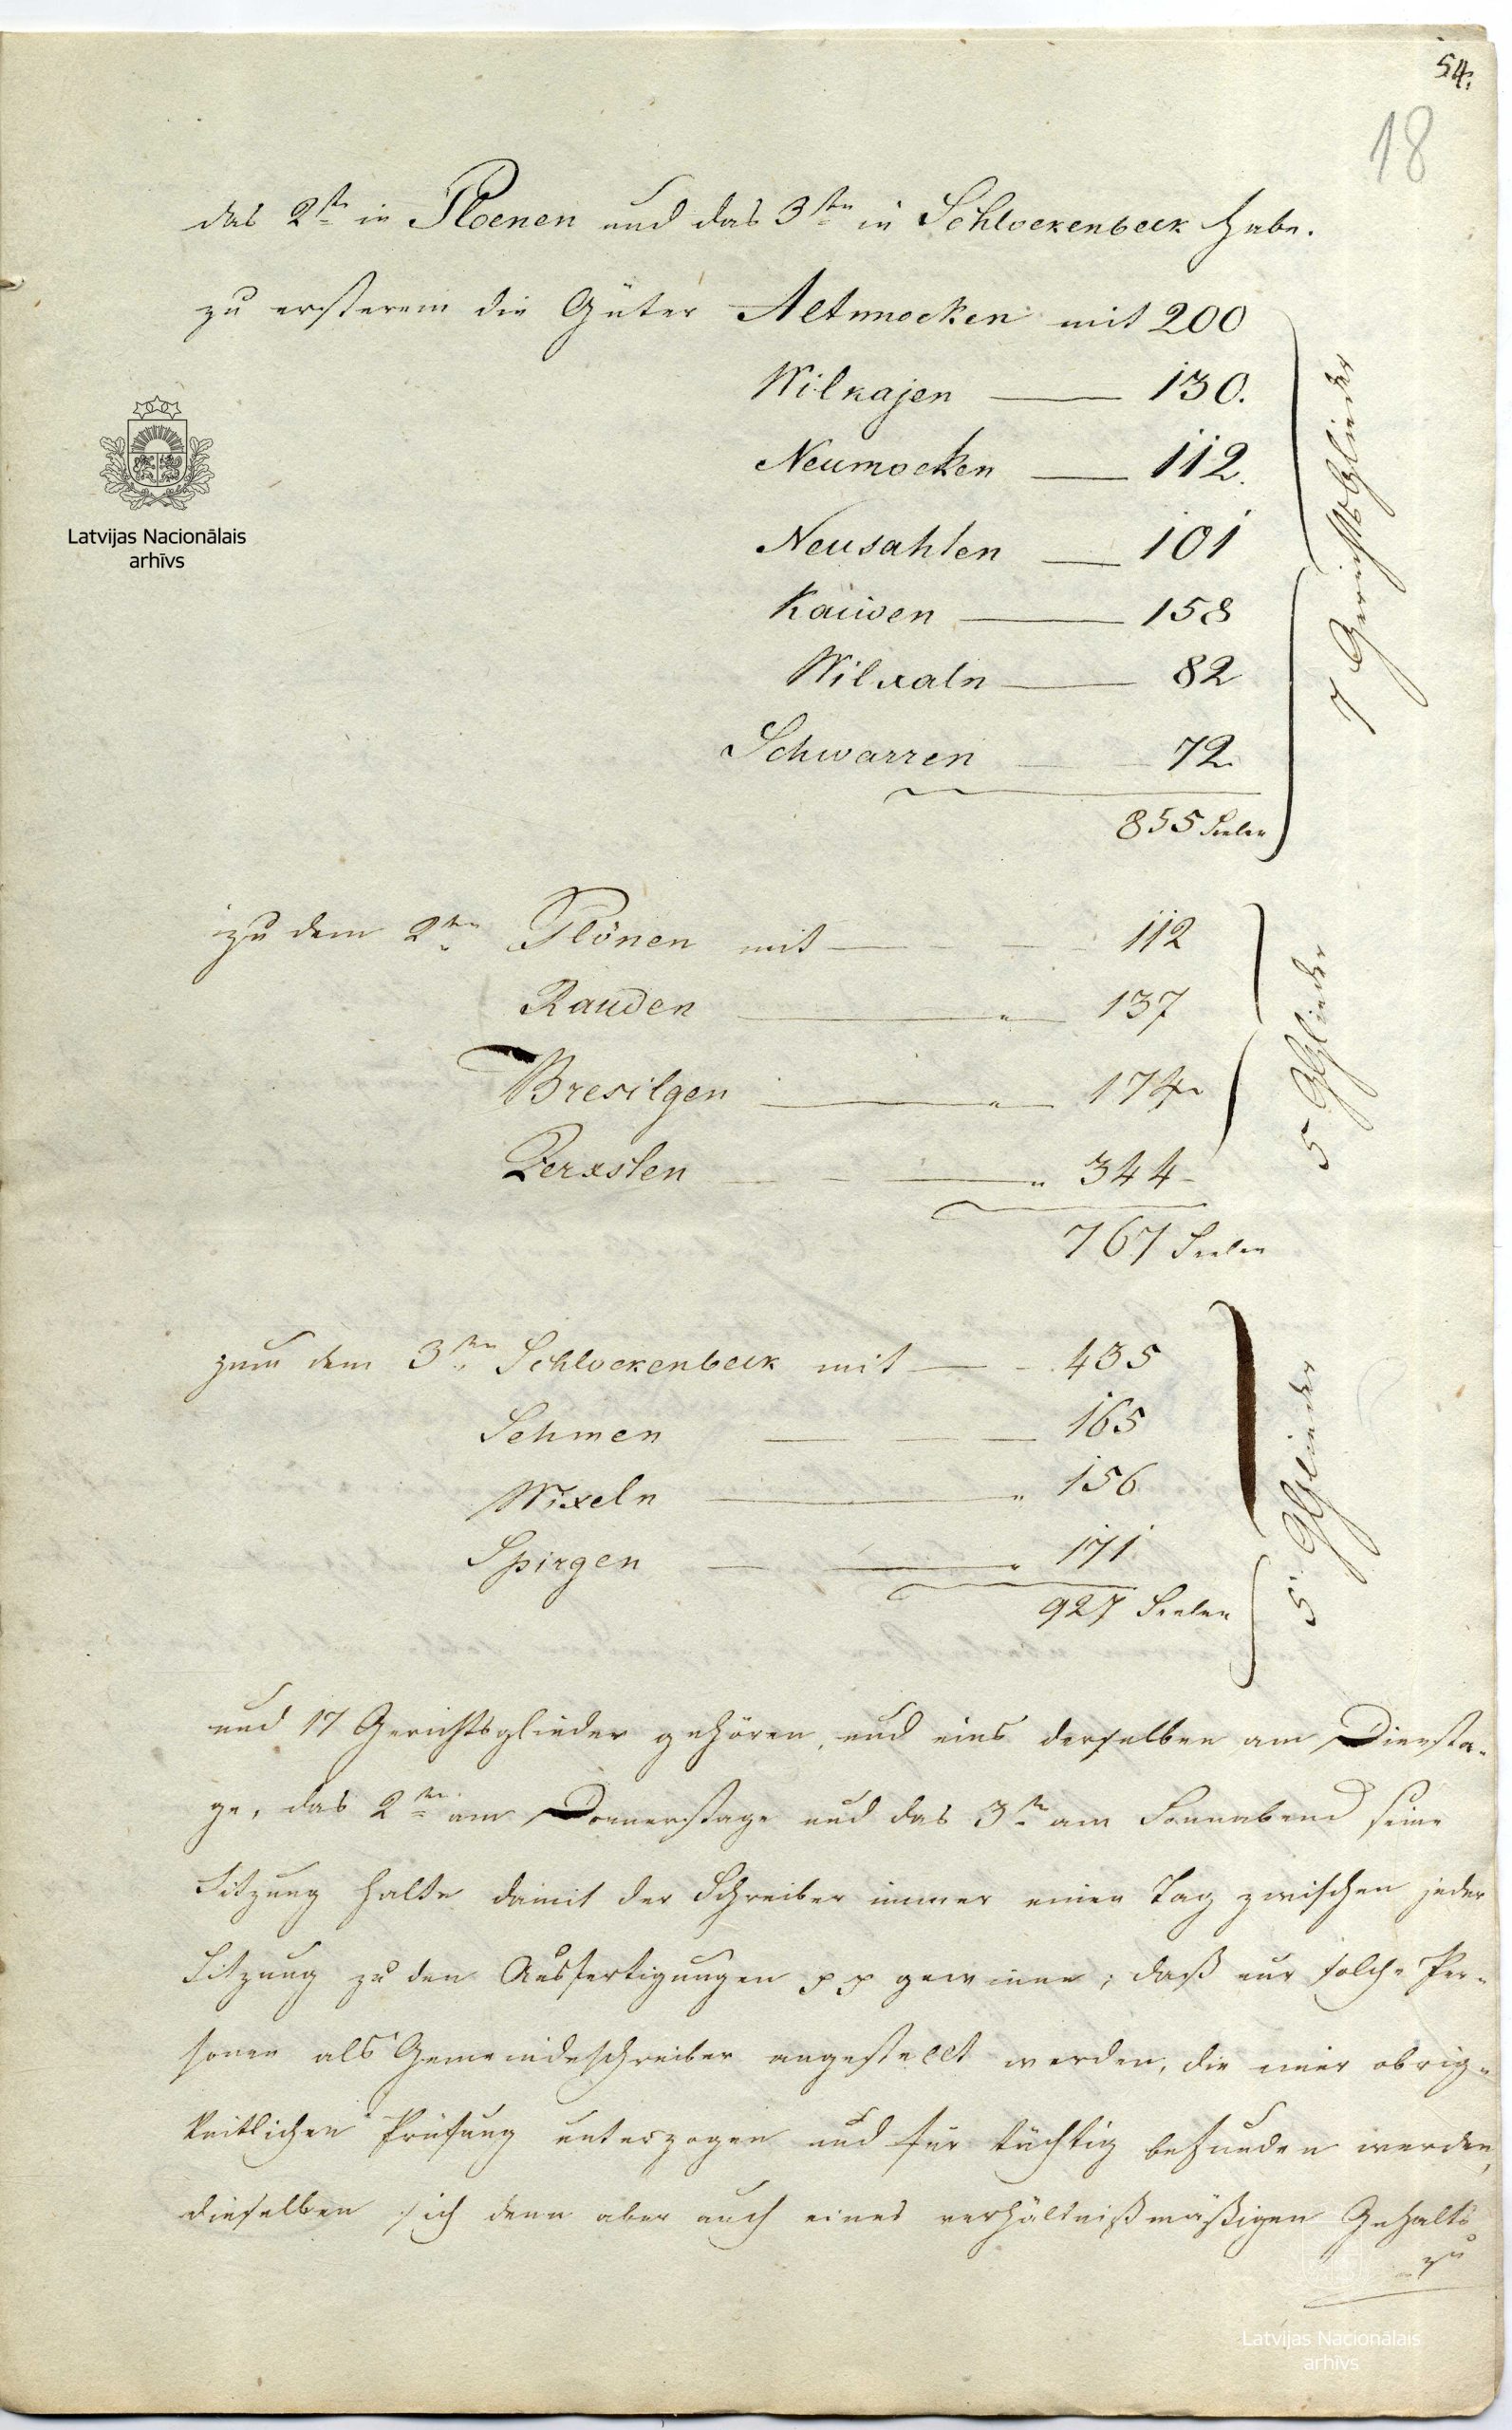 54.
18
das 2te in Ploenen und das 3te in Schlockenbeck habe.
zu ersterem die Güter Altmocken mit 200
Wilkajen — 130.
Neumocken — 112.
Neusahten — 101
Kauwen — 158
Wilxaln — 82
Schwarren — 72.
855 Seelen
7 Gerichts Glieder
zu dem 2ten Plönen mit — 112
Rauden — " — 137
Bresilgen — " — 174
Zerxsten — " 344
767 Seelen
5 GGlieder
zum dem 3ten Schlockenbeck mit — 435
Sehmen — 165
Wixeln — " 156
Spirgen — " 171
927 Seelen
5 GGlieder
und 17 Gerichtsglieder gehören, und eins derselben am Diensta-
ge, das 2te am Donnerstage und das 3te am Sonnabend seine
Sitzung halte damit der Schreiber immer einen Tag zwischen jeder
Sitzung zu den Ausfertigungen pp gewinne; daß nur solche Per-
sonen als Gemeindeschreiber angestellt werden, die einer obrig-
keitlichen Prüfung unterzogen und für tüchtig befunden werden,
dieselben sich denn aber auch eines verhältnißmäßigen Gehalts
zu
Latvijas Nacionālais
arhīvs
Latvijas Nacionālais
arhīvs